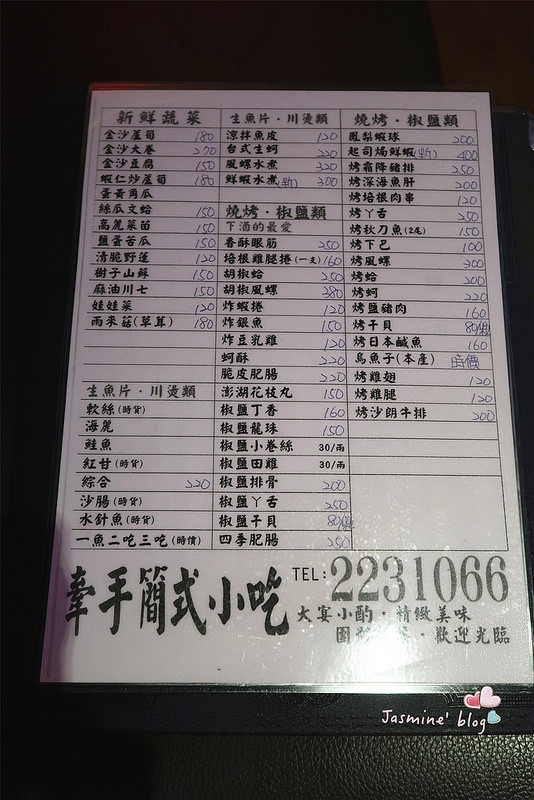 新鮮蔬菜
金沙蘆筍 180
金沙大卷 270
金沙豆腐 150
蝦仁炒蘆筍 180
蛋黃角瓜
絲瓜文蛤 150
高麗菜苗 150
鹽蛋苦瓜 150
清脆野蓮 120
樹子山蘇 150
麻油川七 150
娃娃菜 120
雨來菇(草茸) 180
生魚片·川燙類
軟絲(時貨)
海麗
鮭魚
紅甘(時貨)
綜合 220
沙腸(時貨)
水針魚(時貨)
一魚二吃三吃(時價)
生魚片·川燙類
涼拌魚皮 120
台式生蚵 220
風螺水煮 320
鮮蝦水煮(斬) 300
燒烤·椒鹽類
下酒的最愛
香酥眼筋 250
培根雞腿捲(一支) 160
胡椒蛤 250
胡椒風螺 380
炸蝦捲 120
炸銀魚 150
炸豆乳雞 120
蚵酥 220
脆皮肥腸 220
澎湖花枝丸 150
椒鹽丁香 160
椒鹽龍珠 150
椒鹽小卷絲 30/兩
椒鹽田雞 30/兩
椒鹽排骨 200
椒鹽丫舌 250
椒鹽干貝 80/個
四季肥腸 250
燒烤·椒鹽類
鳳梨蝦球 200
起司焗鮮蝦(斬) 400
烤霜降豬排 250
烤深海魚肝 200
烤培根肉串 120
烤丫舌 250
烤秋刀魚(2尾) 150
烤下巴 100
烤風螺 300
烤蛤 200
烤蚵 220
烤鹽豬肉 160
烤干貝 80/個
烤日本鹹魚 160
烏魚子(本產) 時價
烤雞翅 120
烤雞腿 120
烤沙朗牛排 200
牽手簡式小吃
TEL:2231066
大宴小酌·精緻美味
歡迎光臨
Jasmine' blog